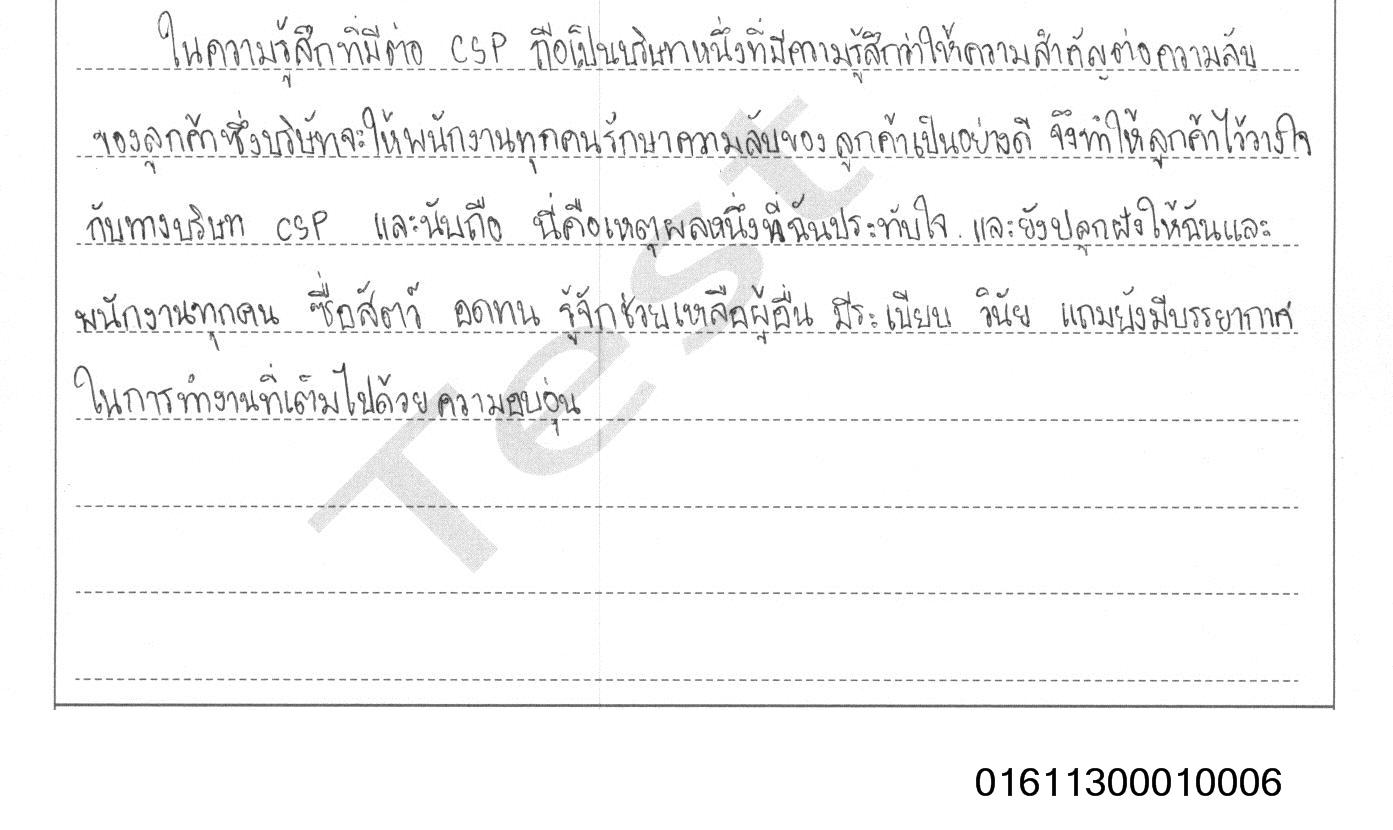 ในความรู้สึกที่มีต่อ CSP ถือเป็นบริษัทหนึ่งที่มีความรู้สึกว่าให้ความสำคัญต่อความลับ
ของลูกค้าซึ่งบริษัทจะให้พนักงานทุกคนรักษาความลับของ ลูกค้าเป็นอย่างดี จึงทำให้ลูกค้าไว้วางใจ
กับทางบริษัท CSP และนับถือ นี่คือเหตุผลหนึ่งที่ฉันประทับใจ และยังปลูกฝังให้ฉันและ
พนักงานทุกคน ซื่อสัตว์ อดทน รู้จักช่วยเหลือผู้อื่น มีระเบียบ วินัย แถมยังมีบรรยากาศ
ในการทำงานที่เต็มไปด้วยความอบอุ่น
Test
01611300010006